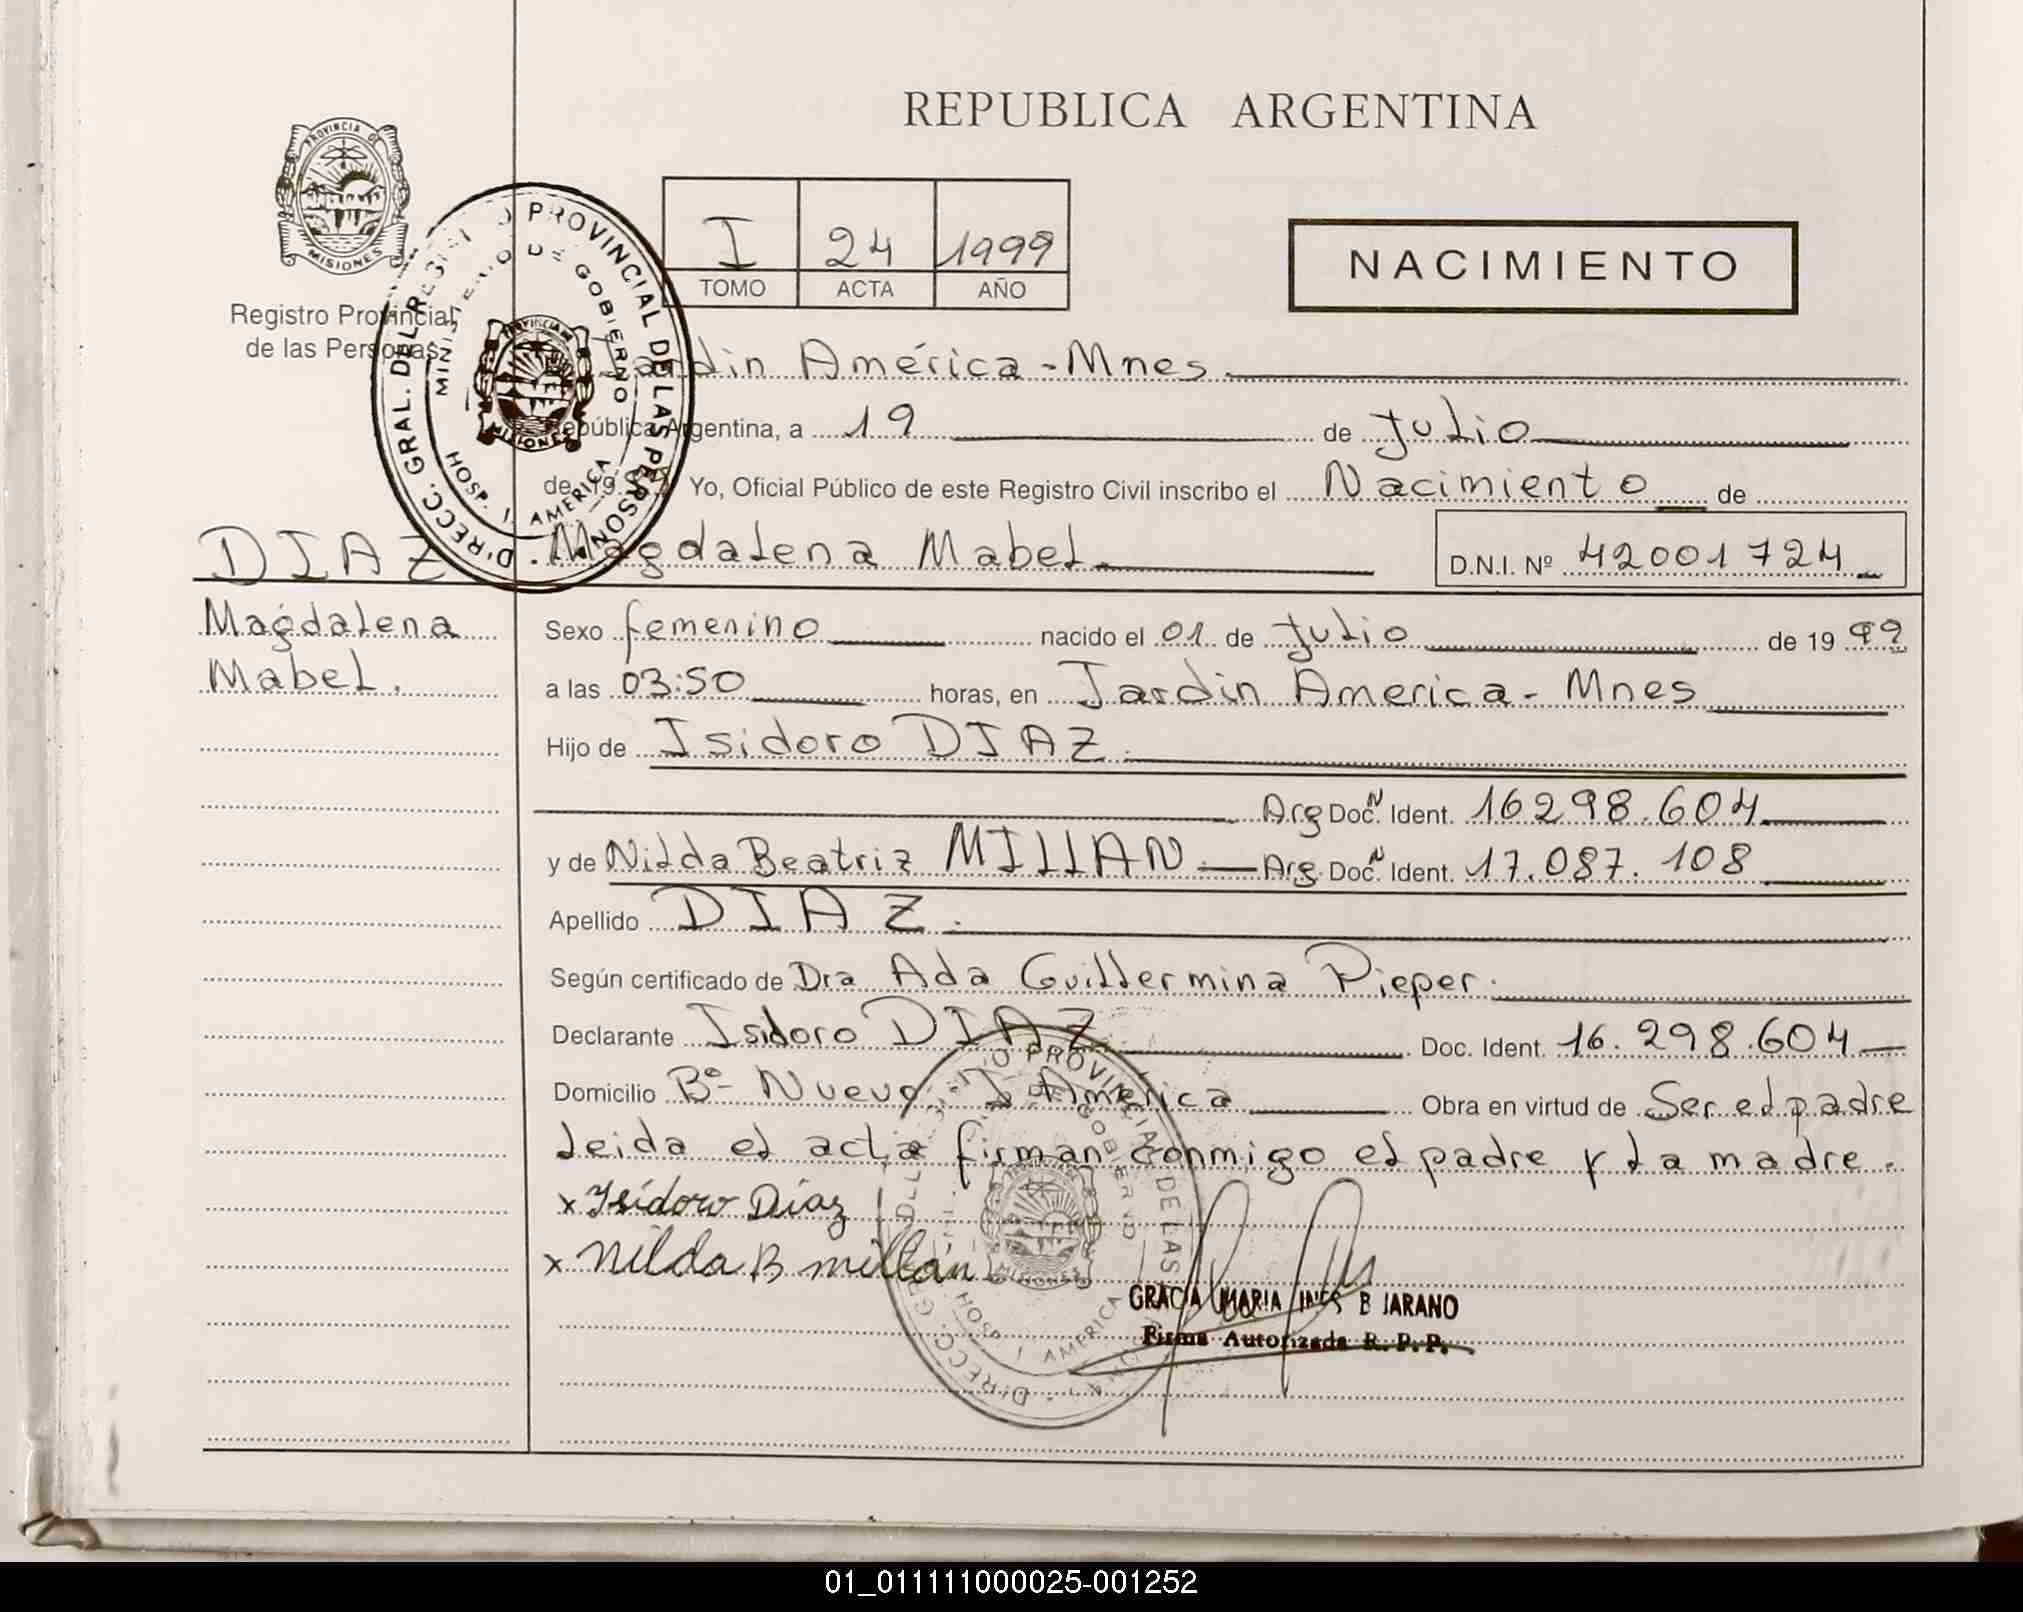 REPUBLICA ARGENTINA
PROVINCIA DE
MISIONES
Registro Provincial
de las Personas
I 24 1999
TOMO ACTA AÑO
NACIMIENTO
DIRECC. GRAL. DEL PROVINCIAL DE LAS PERSONAS
MINISTERIO DE GOBIERNO
HOSP. J. AMERICA
MISIONES
Jardin América - Mnes.
República Argentina, a 19 de Julio
de 19 Yo, Oficial Público de este Registro Civil inscribo el Nacimiento de
DIAZ Magdalena Mabel. D.N.I. Nº 42001724
Magdalena
Mabel.
Sexo femenino nacido el 01 de Julio de 19 99
a las 03:50 horas, en Jardin America - Mnes
Hijo de Isidoro DIAZ.
Arg Doc. N Ident. 16298.604
y de Nilda Beatriz MILLAN Arg. Doc. N Ident. 17.087.108
Apellido DIAZ.
Según certificado de Dra Ada Guillermina Pieper.
Declarante Isidoro DIAZ Doc. Ident. 16.298.604
Domicilio Bº- Nuevo J America Obra en virtud de Ser el padre
Leida el acta firman conmigo el padre y la madre.
x Isidoro Díaz
x Nilda B millán
PROVINCIAL DE LAS
HOSP. J AMERICA
MISIONES
GRACIA MARIA INES B JARANO
Firma Autorizada R. P. P.
01_011111000025-001252